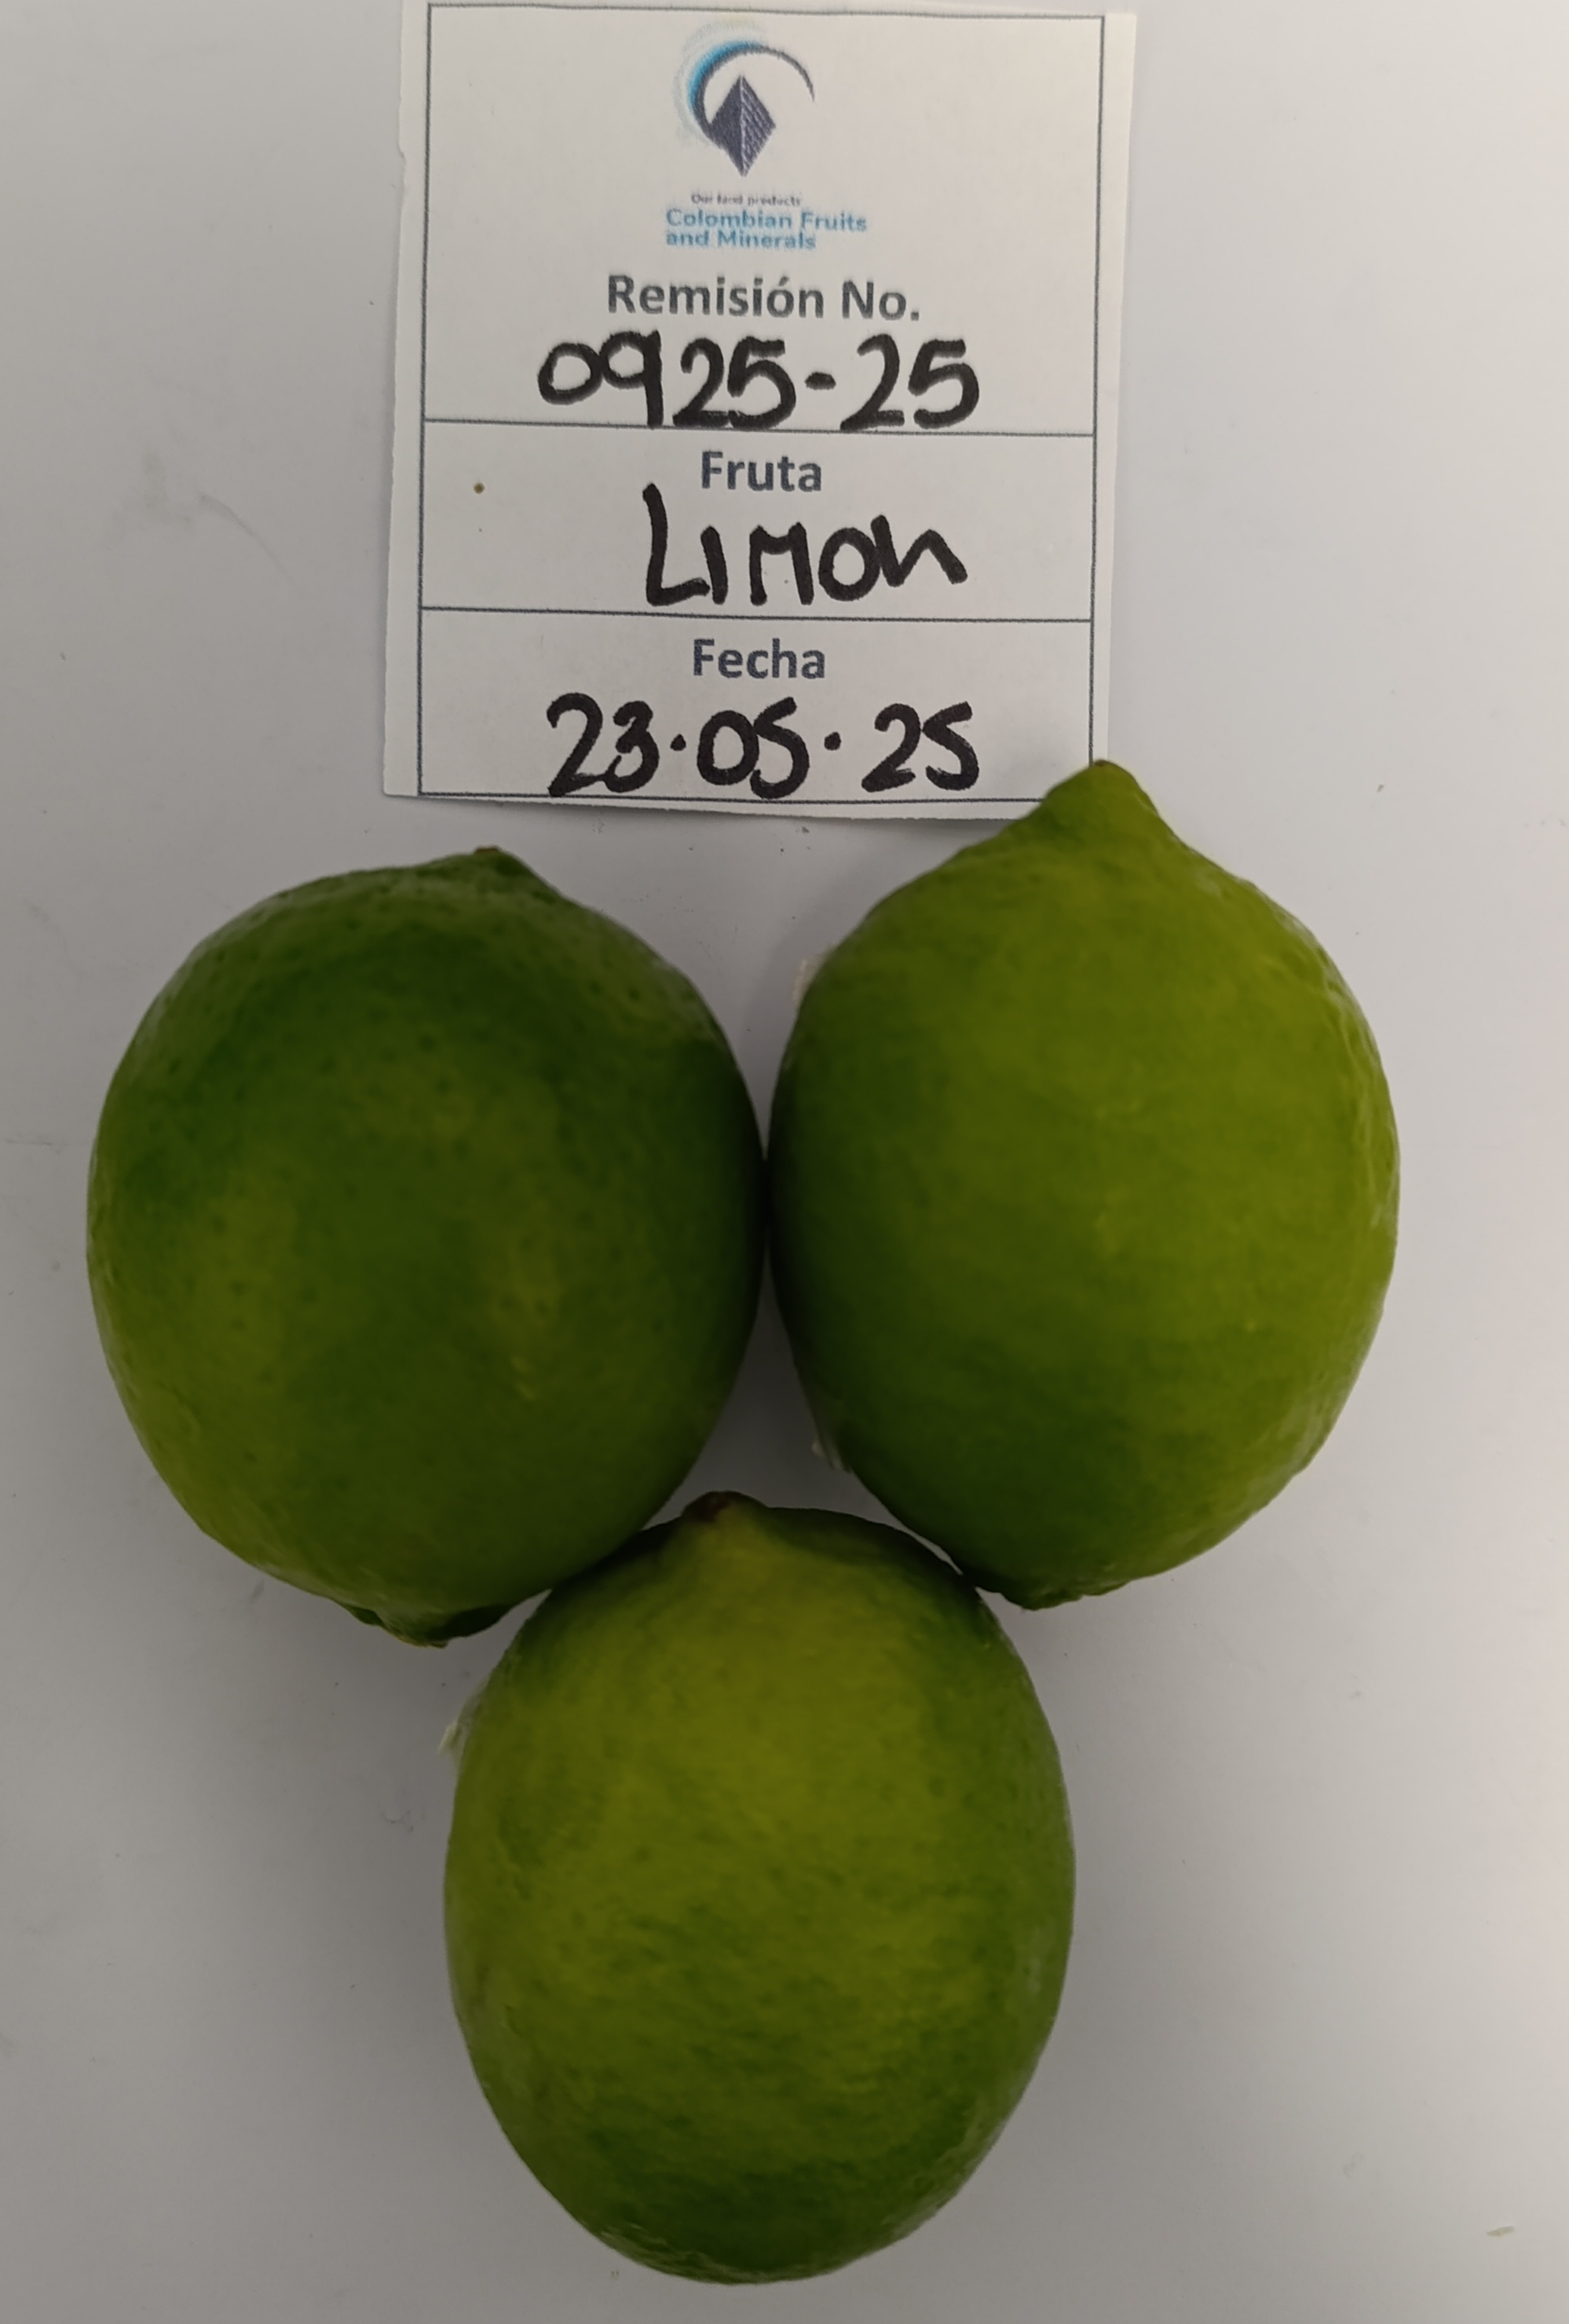 Our land products
Colombian Fruits
and Minerals
Remisión No.
0925-25
Fruta
LIMON
Fecha
23.05.25